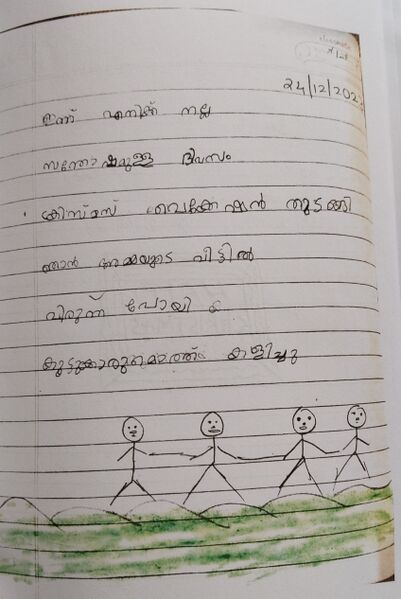 24/12/202
ഇന്ന് എനിക്ക് നല്ല
സന്തോഷമുള്ള ദിവസം
ക്രിസ്മസ് വെക്കേഷൻ തുടങ്ങി
ഞാൻ അമ്മയുടെ വീട്ടിൽ
വിരുന്ന് പോയി
കൂട്ടുകാരുമൊത്ത് കളിച്ചു